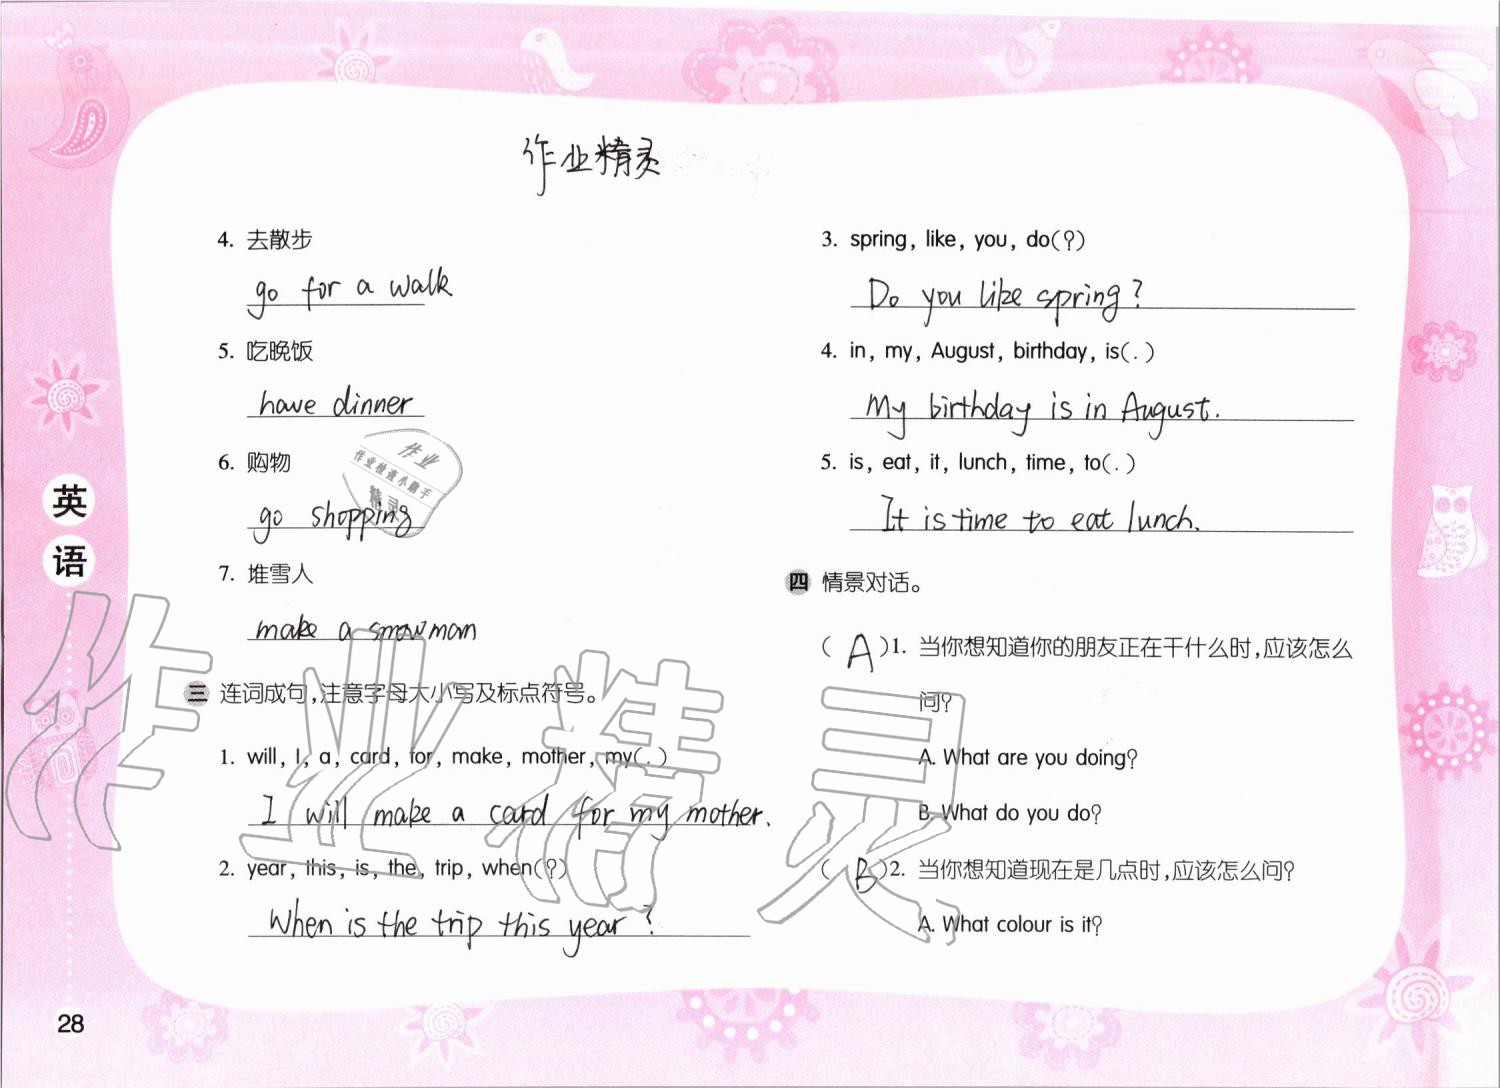 作业精灵
4. 去散步
go for a walk
5. 吃晚饭
have dinner
6. 购物
go shopping
作业
作业检查小助手
精灵
7. 堆雪人
make a snowman
三 连词成句,注意字母大小写及标点符号。
1. will, I, a, card, for, make, mother, my(.)
I will make a card for my mother.
2. year, this, is, the, trip, when(?)
When is the trip this year?
3. spring, like, you, do(?)
Do you like spring?
4. in, my, August, birthday, is(.)
My birthday is in August.
5. is, eat, it, lunch, time, to(.)
It is time to eat lunch.
四 情景对话。
( A )1. 当你想知道你的朋友正在干什么时,应该怎么
问?
A. What are you doing?
B. What do you do?
( B )2. 当你想知道现在是几点时,应该怎么问?
A. What colour is it?
英语
28
作业精灵